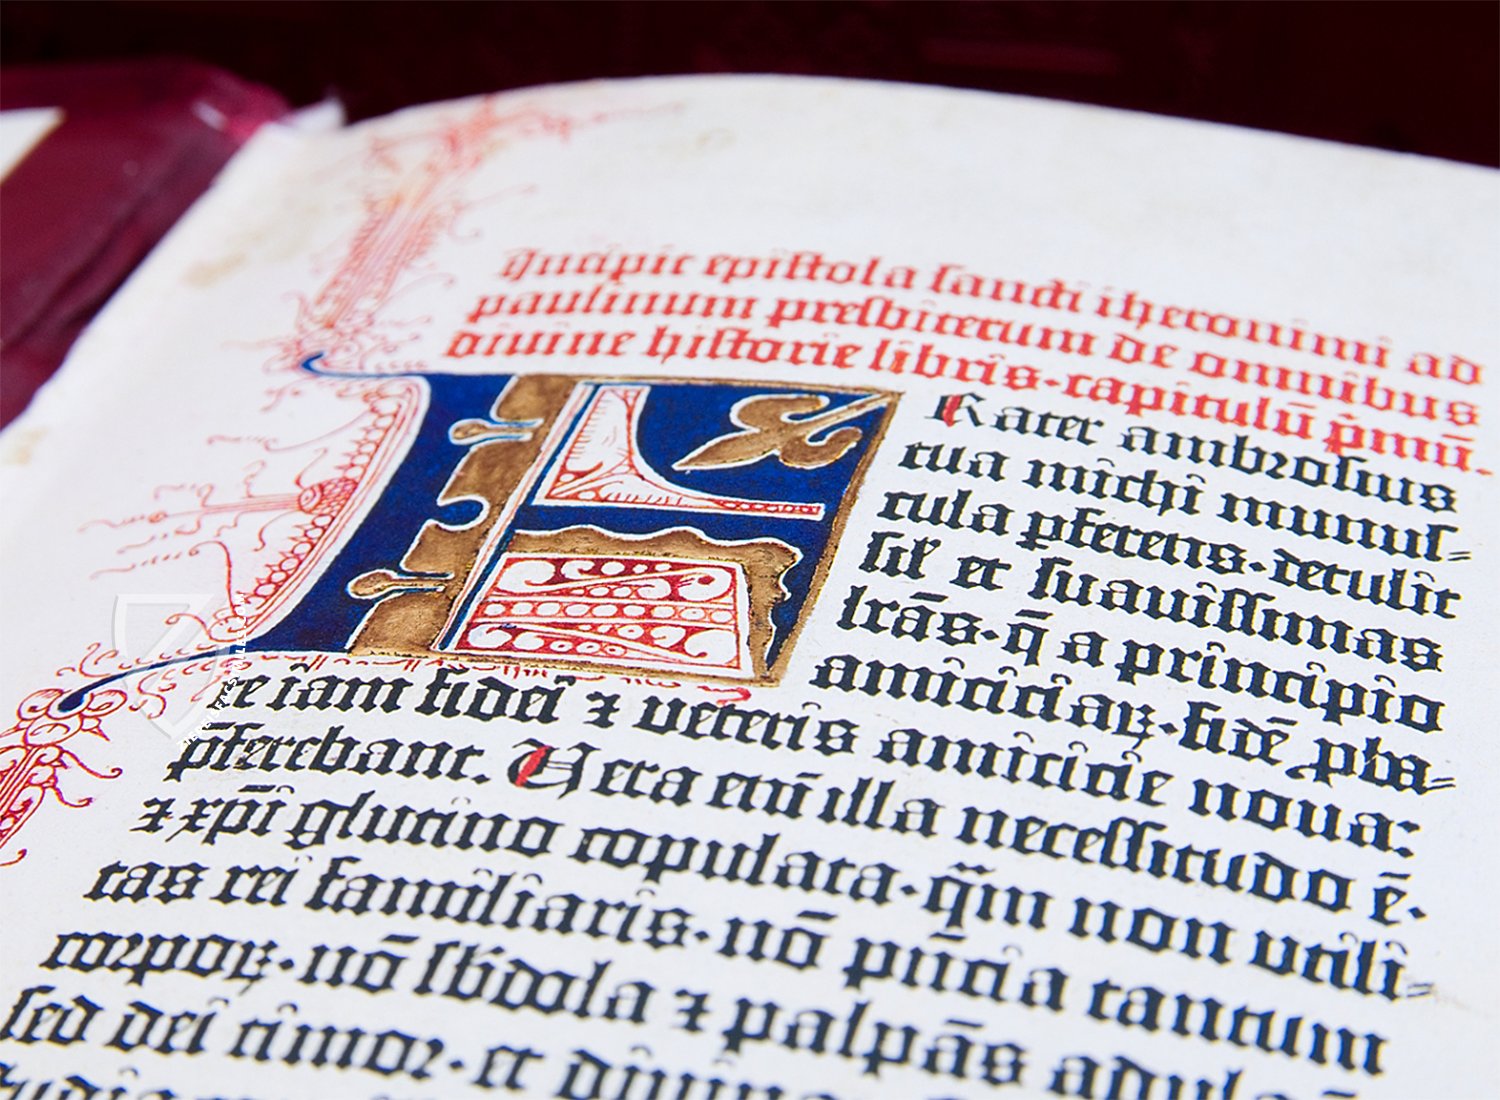 Incipit epistola sancti iheronimi ad
paulinum presbiterum de omnibus
divine historie libris·capitulū p̄mū.
Frater ambrosius
tua michi munus-
cula pferens·detulit
sił et suavissimas
lrās·q̄ a principio
amiciciaꝝ·fidē pba-
te iam fidei ⁊ veteris amicicie nova:
p̄ferebant. Vera eni illa necessitudo ē·
⁊ xpī glutino copulata·q̄m non utili-
tas rei familiaris·nō pn̄cia tantum
corpoꝝ·nō sbdola ⁊ palpās adula-
sed dei timor·et divina